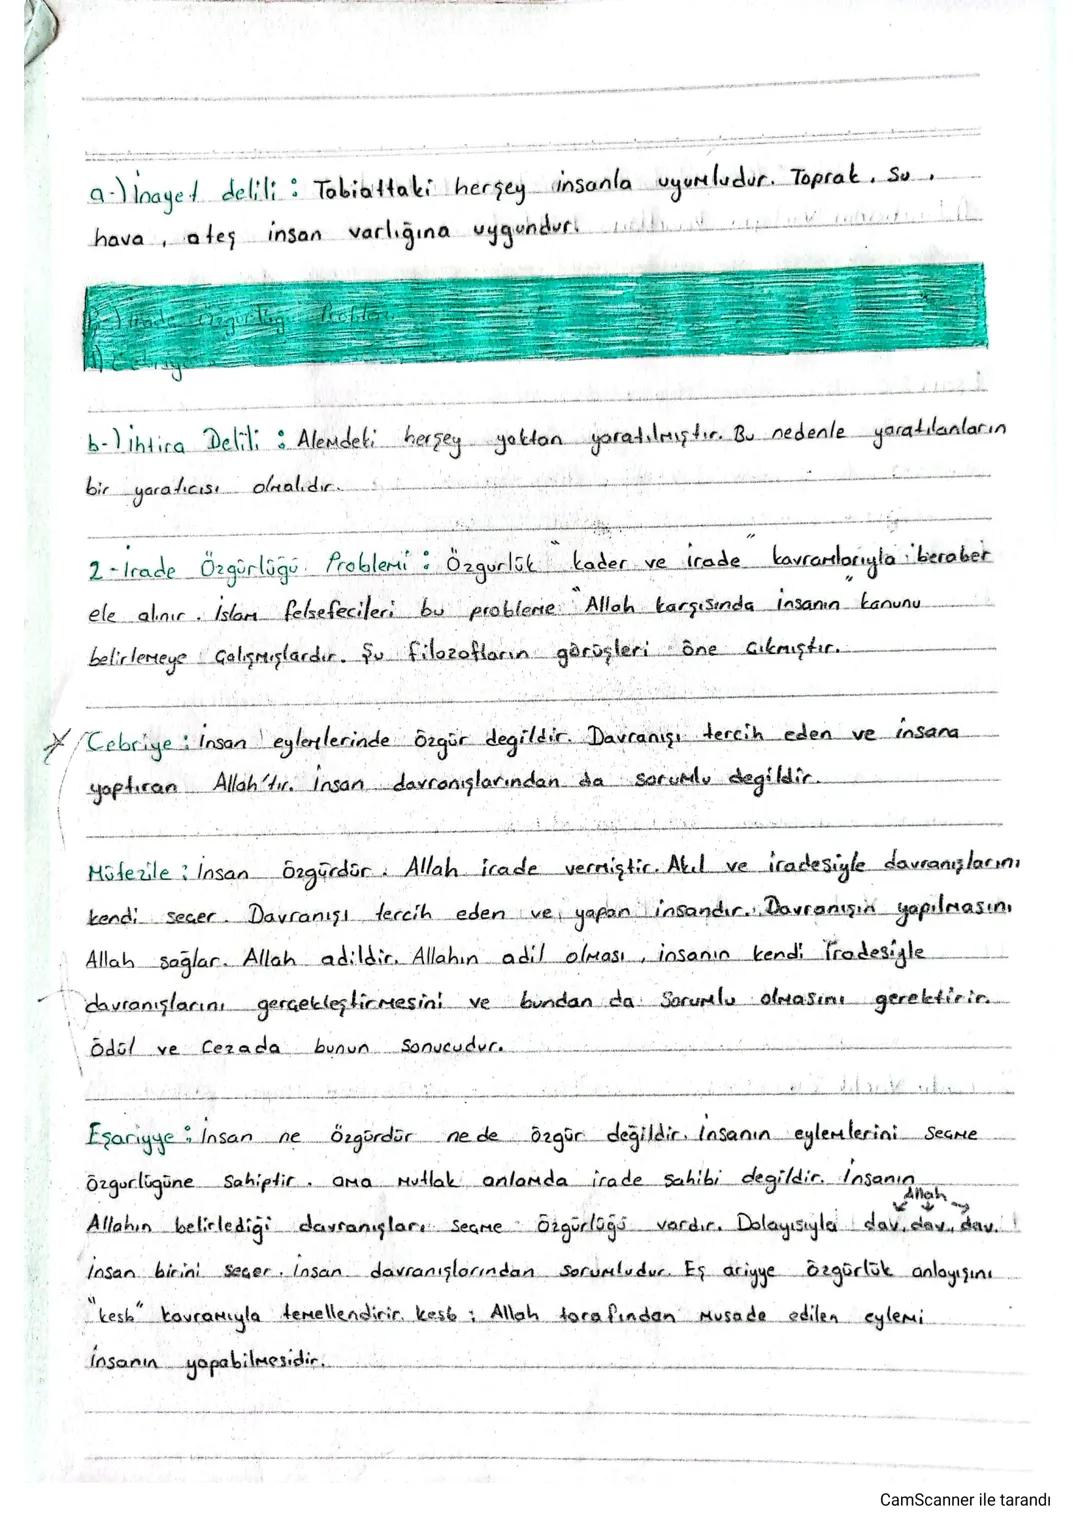 a-) İnayet delili : Tabiattaki herşey insanla uyumludur. Toprak, su,
hava, ateş insan varlığına uygundur.
b-) İhtira Delili : Alemdeki herşey yoktan yaratılmıştır. Bu nedenle yaratılanların
bir yaratıcısı olmalıdır.
2-İrade Özgürlüğü Problemi : Özgurlük "kader ve irade" kavramlarıyla beraber
ele alınır. İslam felsefecileri bu probleme "Allah karşısında insanın" kanunu
belirlemeye Çalışmışlardır. Şu filozofların görüşleri öne Çıkmıştır.
Cebriye : İnsan eylemlerinde özgür degildir. Davranışı tercih eden ve insana
yaptıran Allah'tır. İnsan davranışlarından da sorumlu degildir.
Mütezile : İnsan özgürdür. Allah irade vermiştir. Akıl ve iradesiyle davranışlarını
kendi seçer. Davranışı tercih eden ve yapan insandır. Davranışın yapılmasını
Allah sağlar. Allah adildir. Allahın adil olması, insanın kendi iradesiyle
davranışlarını gerçekleştirmesini ve bundan da Sorumlu olmasını gerektirir.
Ödül ve Cezada bunun Sonucudur.
Eşariyye : İnsan ne özgürdür ne de özgür değildir. İnsanın eylemlerini seçme
özgurlügüne sahiptir. ama mutlak anlamda irade sahibi degildir. İnsanın
Allah
Allahın belirlediği davranışları seçme özgürlüğü vardır. Dolayısıyla dav. dav. dav.
İnsan birini seçer. İnsan davranışlarından sorumludur. Eş ariyye özgürlük anlayışını
"kesb" kavramıyla temellendirir. kesb : Allah tarafından musade edilen eylemi
insanın yapabilmesidir.
CamScanner ile tarandı